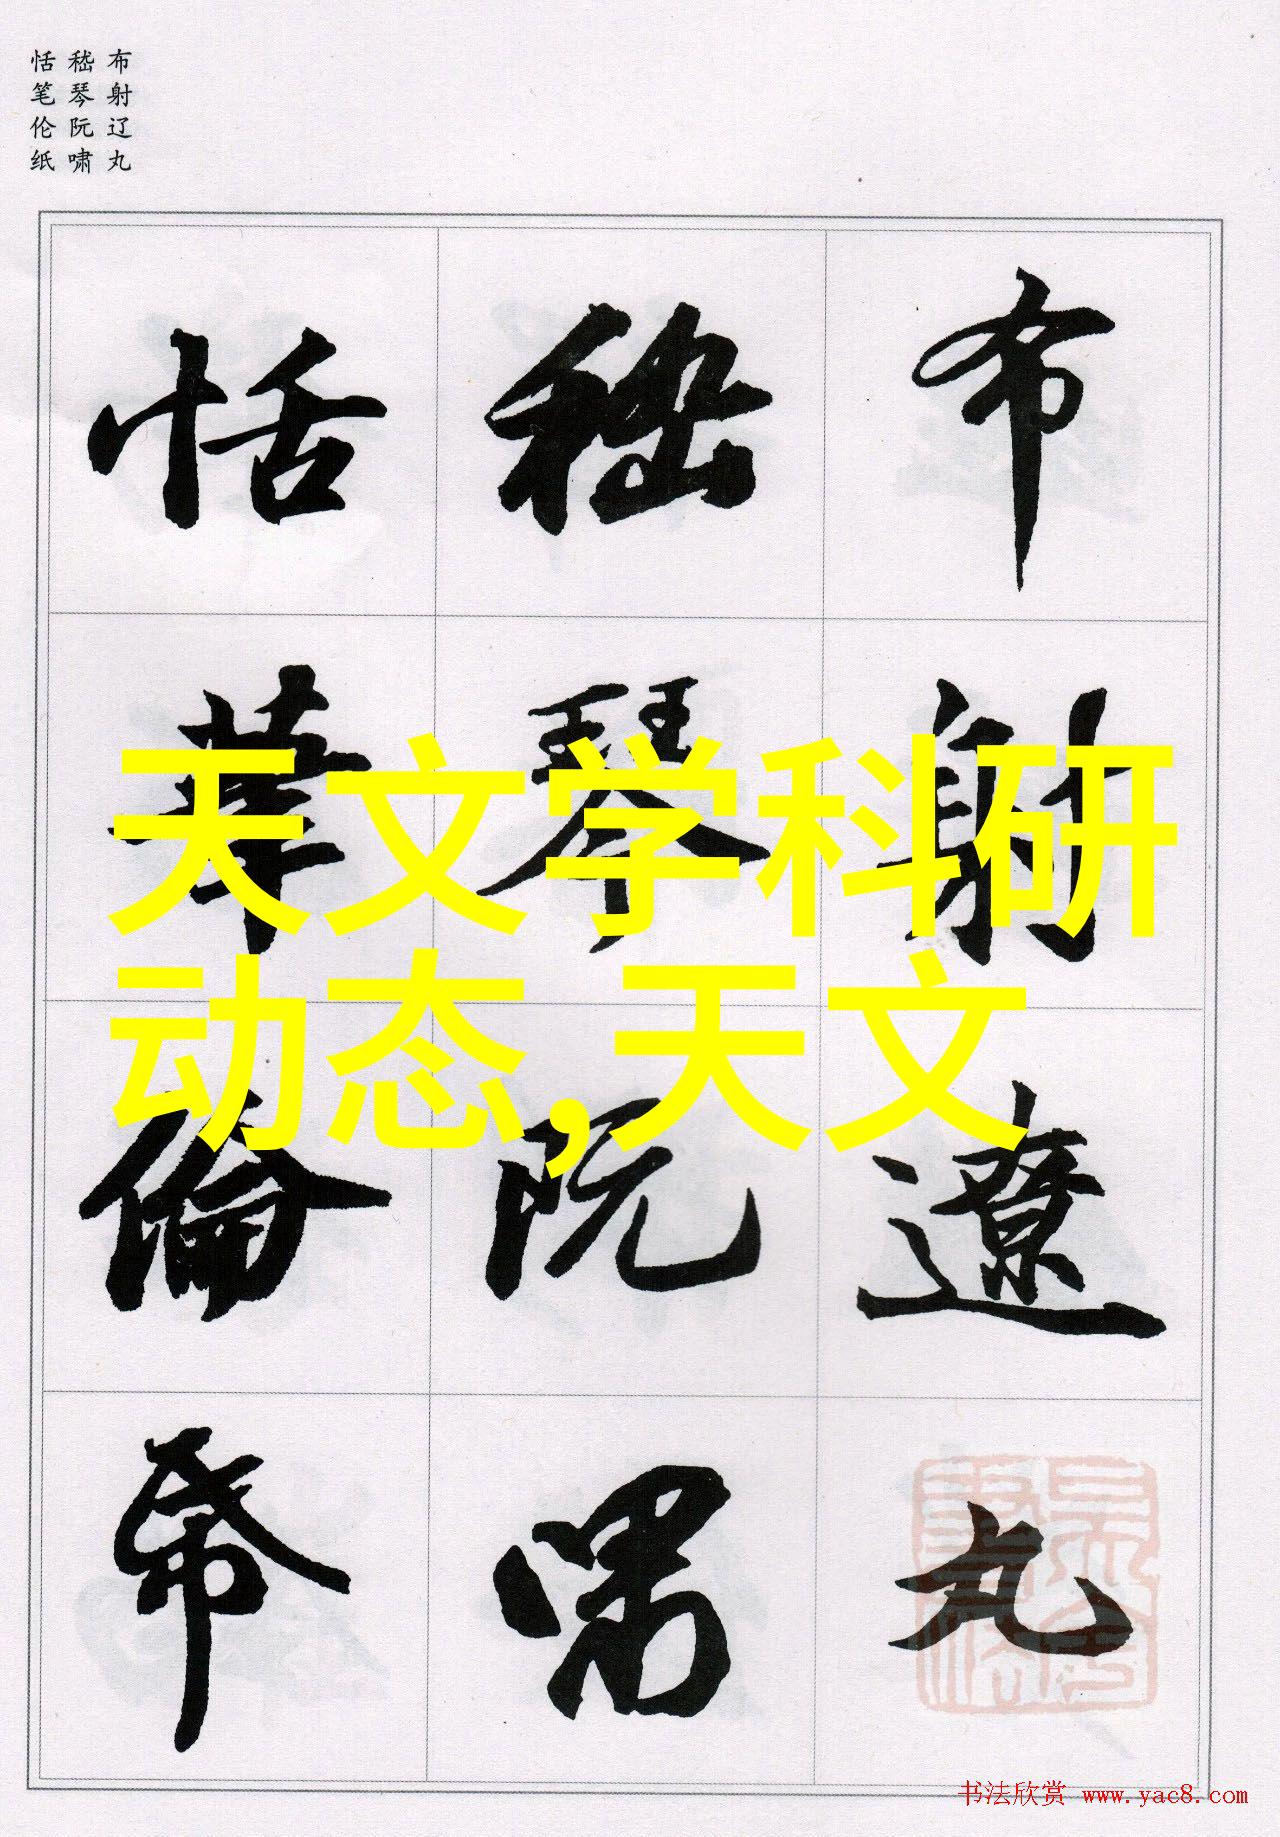 布射辽丸
嵇琴阮啸
恬笔伦纸
布射遼丸
嵇琴阮嘯
恬筆倫帋
天文学科研
动态,天文
书法欣赏 www.yac8.com